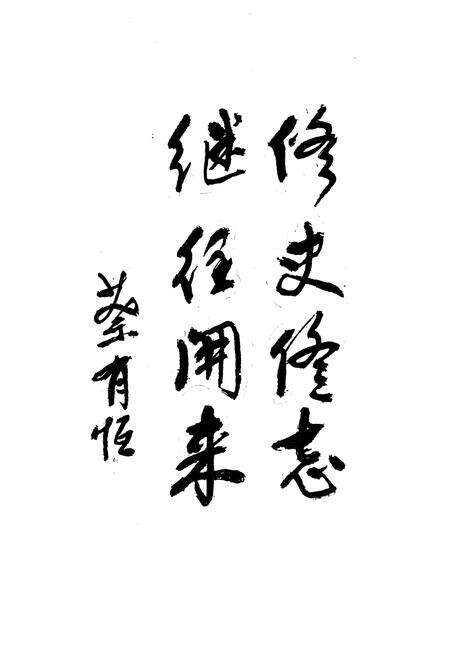 修史修志
继往開来
蔡有恒